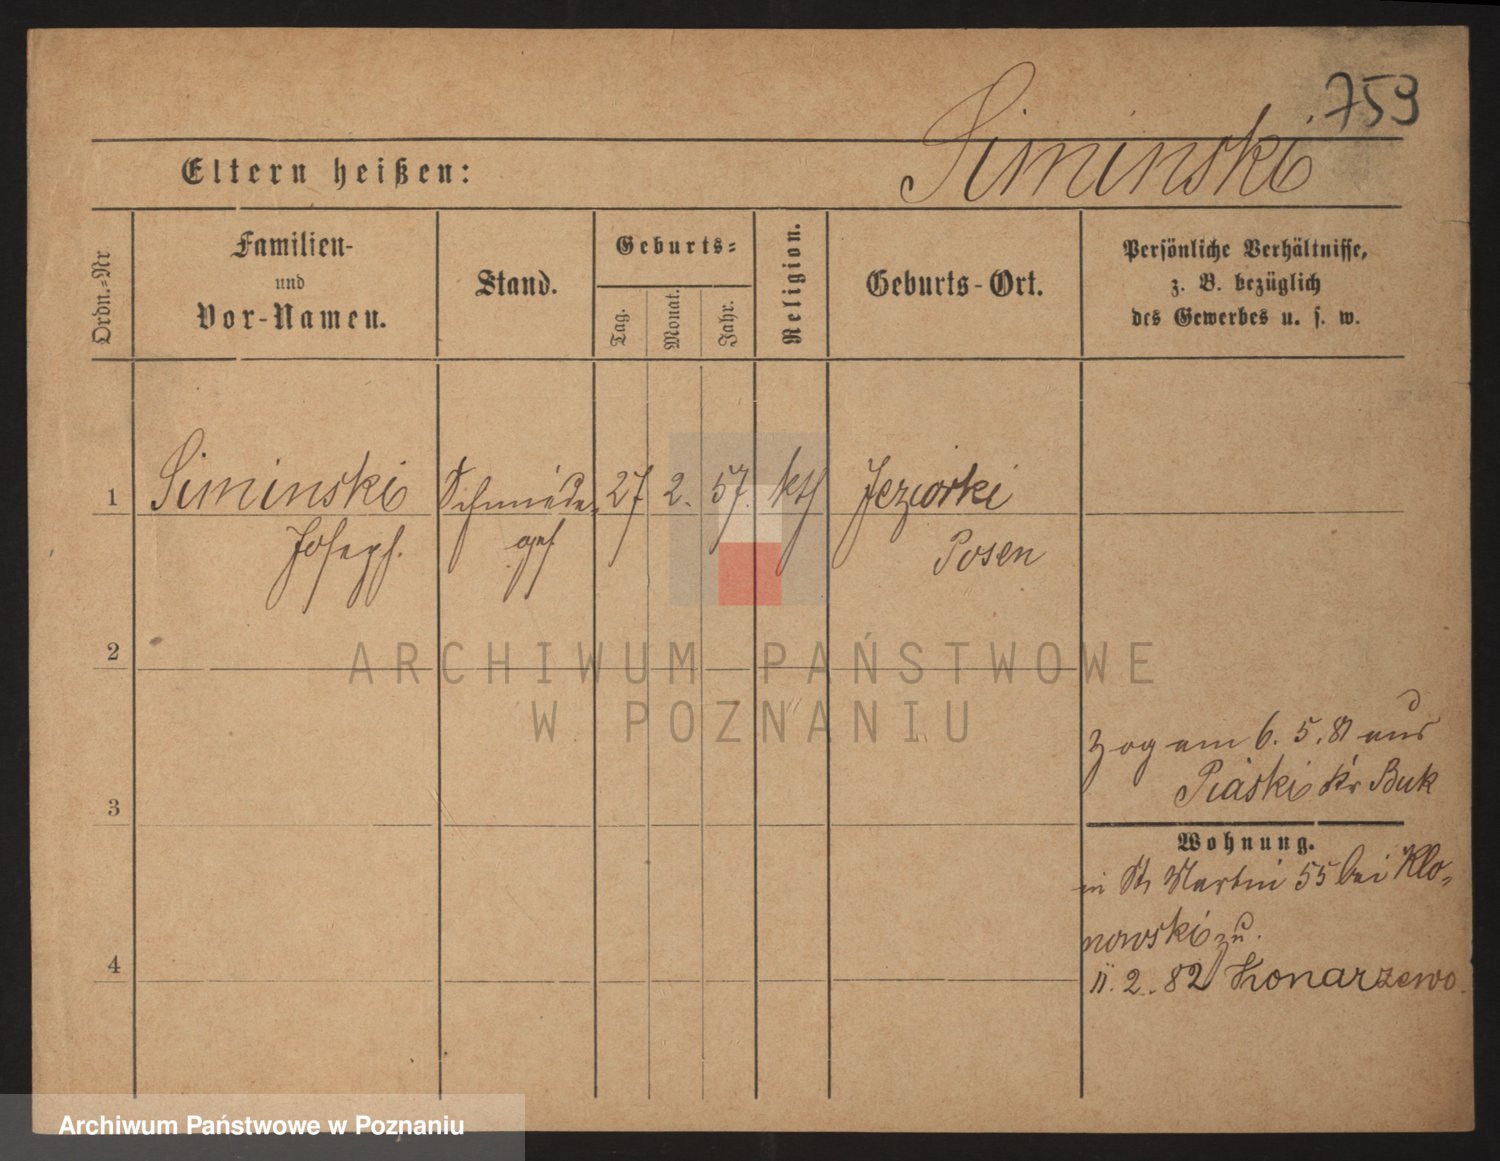 759
Siminski
Eltern heißen:
Ordn.-Nr
Familien-
und
Vor-Namen.
Stand.
Geburts-
Tag.
Monat.
Jahr.
Religion.
Geburts-Ort.
Persönliche Verhältnisse,
z. B. bezüglich
des Gewerbes u. s. w.
1 Siminski Schmiede- 27 2. 57. kth Jeziorki
Joseph. ges Posen
2
ARCHIWUM PAŃSTWOWE
W POZNANIU
zog am 6. 5. 81 aus
Piaski Kr Buk
3
Wohnung.
in St Martin 55 bei Klo-
nowski zu.
4
11. 2. 82 Konarzewo.
Archiwum Państwowe w Poznaniu